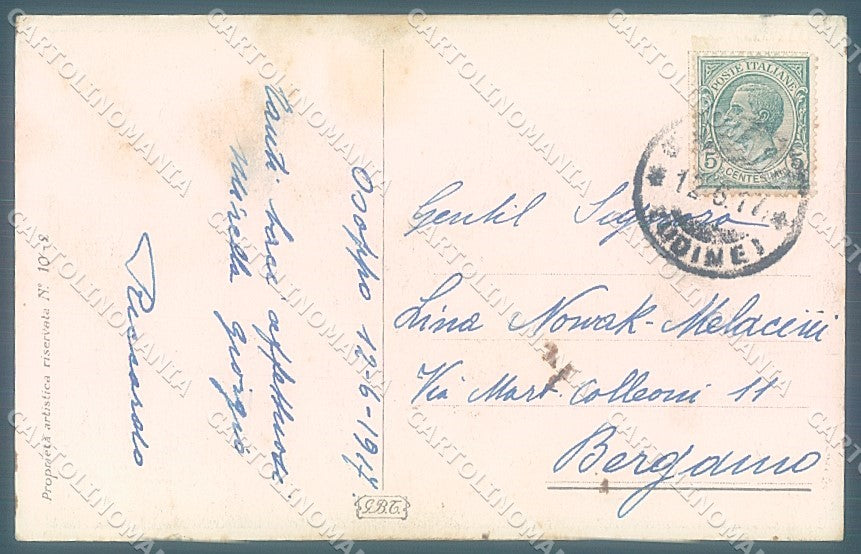 Osoppo 12-6-1917
Tanti baci affettuosi
Mirella Giorgio
Riccardo
Proprietà artistica riservata N° 1038
G.B.T.
POSTE ITALIANE
5 5
CENTESIMI
12.6.17
(UDINE)
Gentil Signora
Lina Nowak-Melacini
Via Mart. Colleoni 11
Bergamo
CARTOLINOMANIA